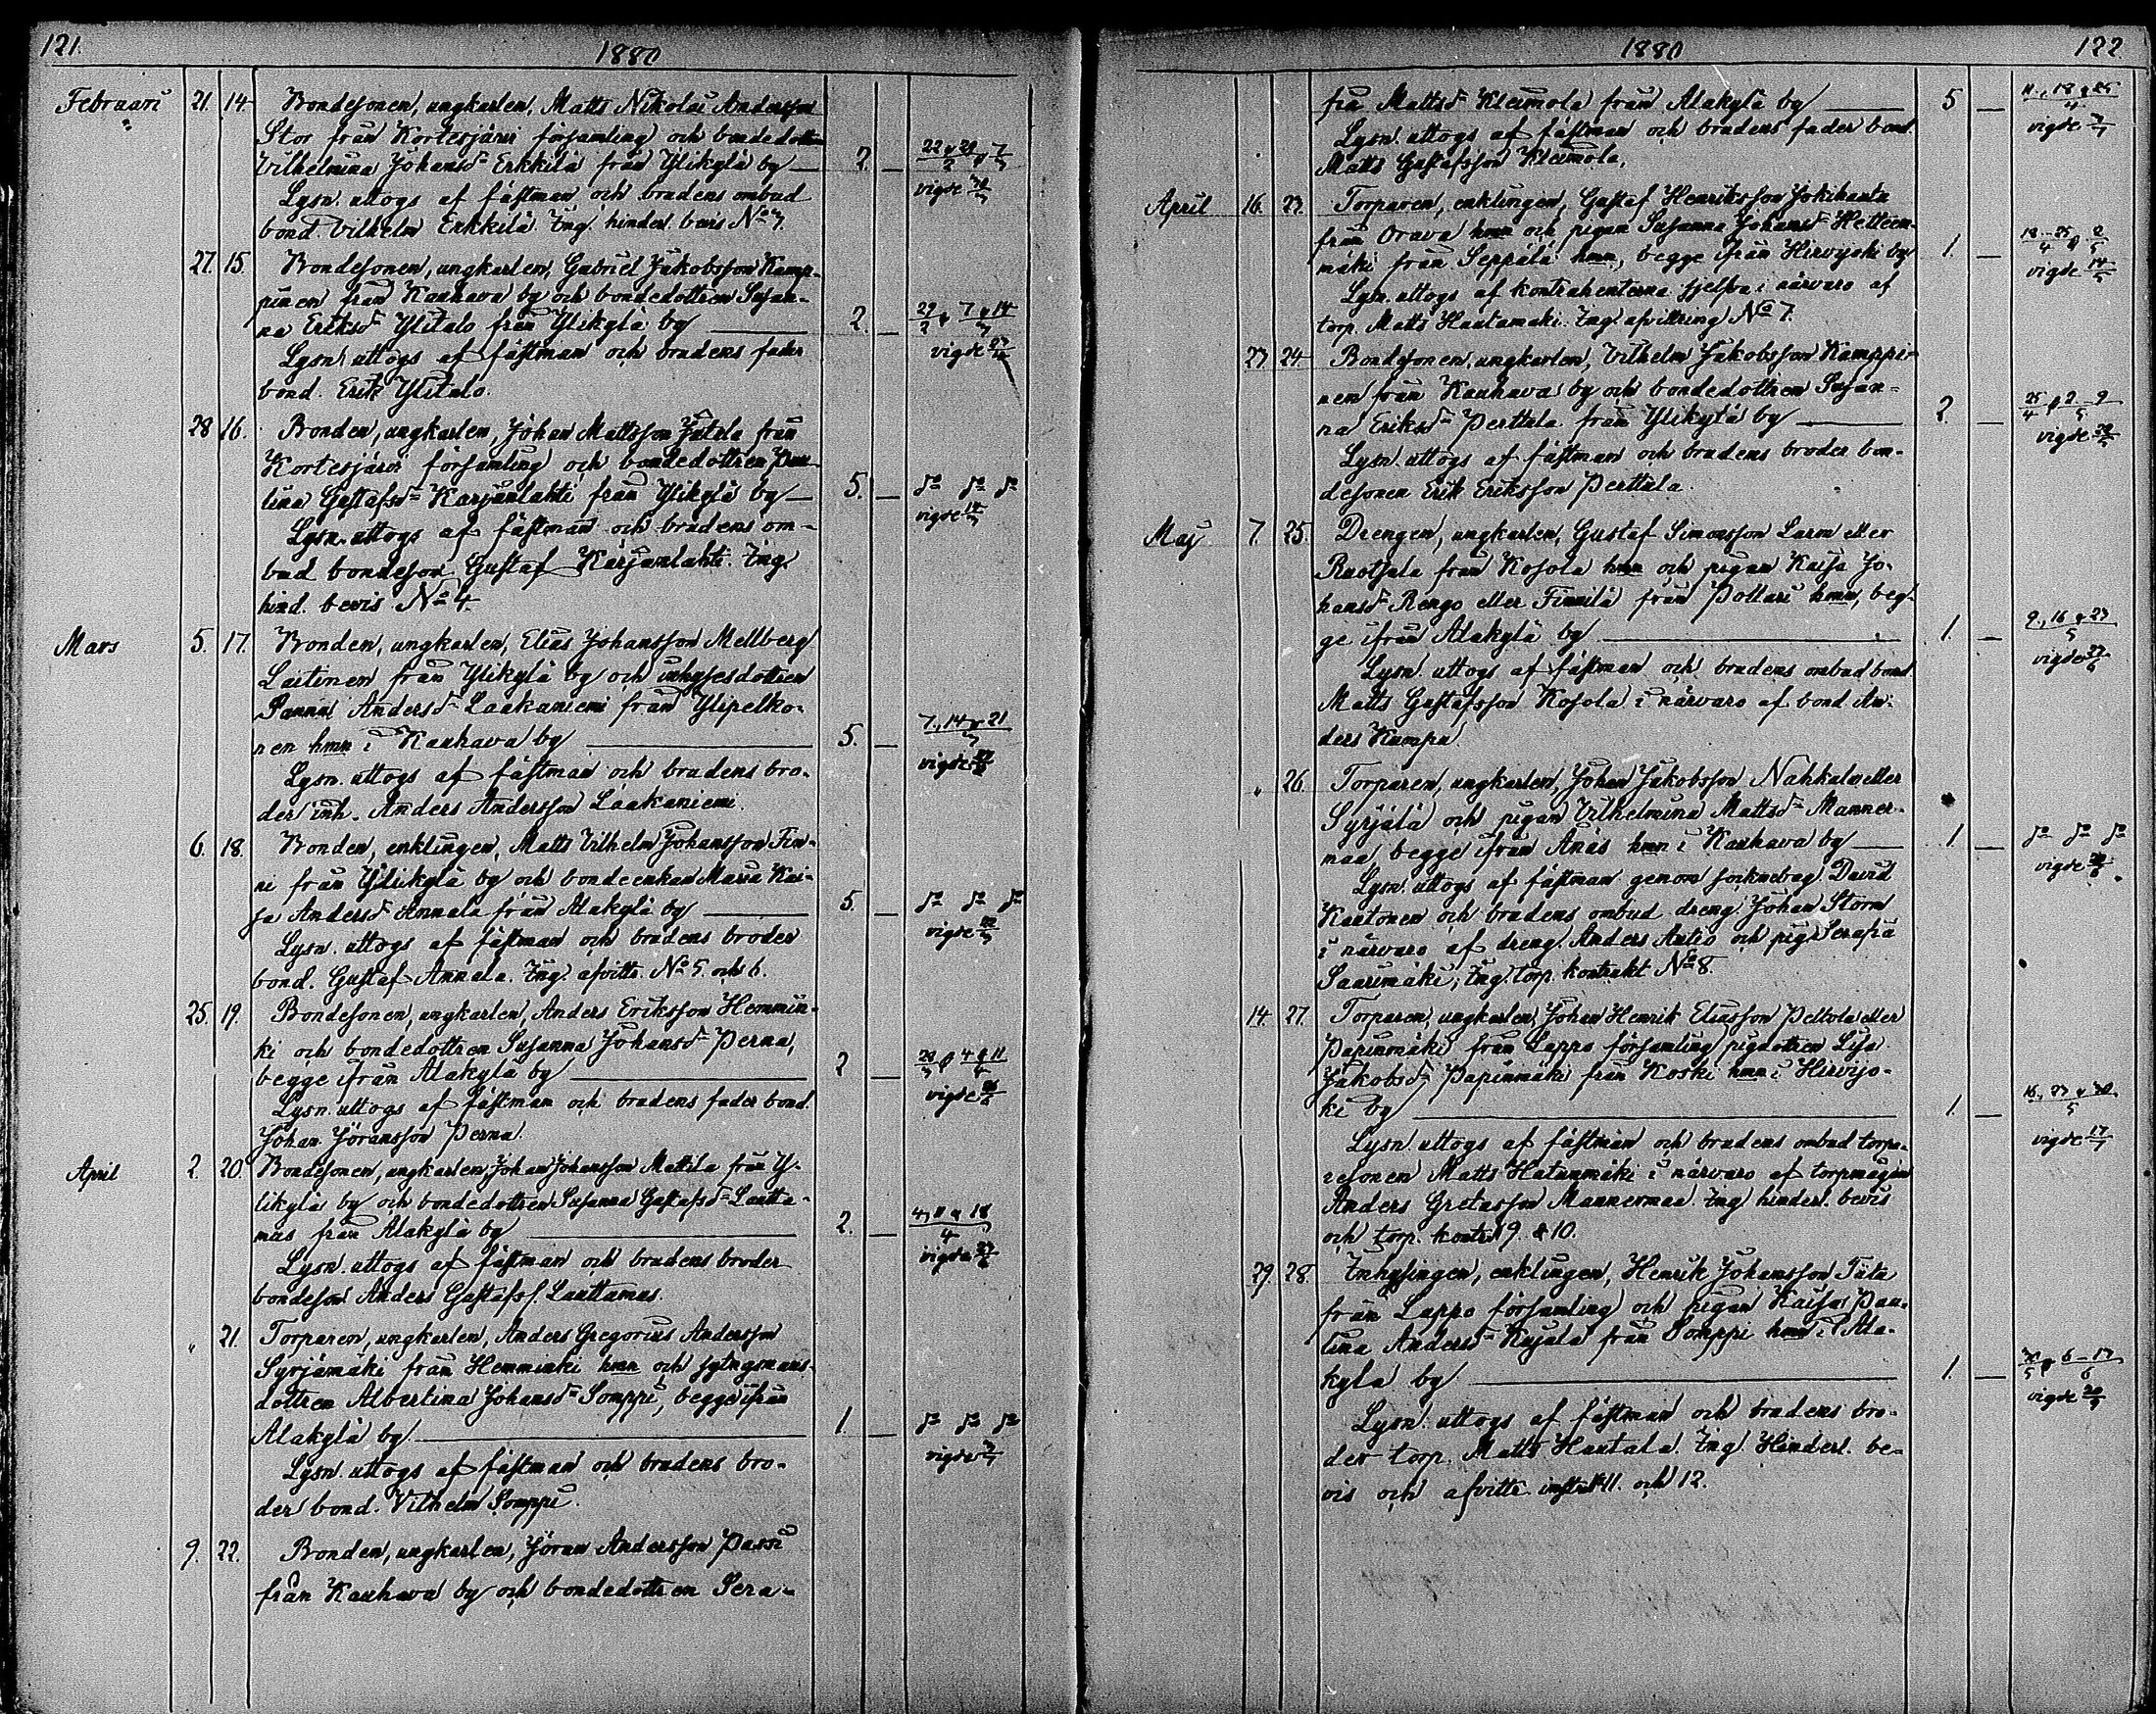 121.
1880
Februari 21. 14. Bondesonen, ungkarlen, Matts Nikolai Andersson
Stor från Kortesjärvi församling och bondedottren
Vilhelmina Johansd:r Erkkilä från Ylikylä by — 2. — 22 & 29/2 & 7/3
Lysn. uttogs af fästman och brudens ombud vigde
bond. Vilhelm Erkkilä. Ing. hinderl. bevis N:o 3.
27. 15. Bondesonen, ungkarlen, Gabriel Jakobsson Kamp-
pinen från Kauhava by och bondedottren Susan-
na Eriksd:r Ylitalo från Ylikylä by — 2. — 29/2 & 7 & 14/3
Lysn. uttogs af fästman och brudens fader vigde
bond. Erik Ylitalo.
28 16. Bonden, ungkarlen, Johan Mattsson Jutila från
Kortesjärvi församling och bondedottren Pau-
lina Gustafsd:r Karjanlahti från Ylikylä by — 5. — d:o d:o d:o
Lysn. uttogs af fästman och brudens om- vigde
bud bondeson Gustaf Karjanlahti. Ing.
hind. bevis N:o 4.
Mars 5. 17. Bonden, ungkarlen, Elias Johansson Mellberg
Laitinen från Ylikylä by och inhysesdottren
Sanna Andersd:r Laakaniemi från Ylipelko-
nen hmn i Kauhava by — 5. — 7, 14 & 21/3
Lysn. uttogs af fästman och brudens bro- vigde
der inh. Anders Andersson Laakaniemi.
6. 18. Bonden, enklingen, Matts Vilhelm Johansson Fin-
ni från Ylikylä by och bondeenkan Maria Kai-
sa Andersd:r Annala från Alakylä by — 5. — d:o d:o d:o
Lysn. uttogs af fästman och brudens broder vigde
bond. Gustaf Annala. Ing. afvittr. N:o 5. och 6.
25. 19. Bondesonen, ungkarlen, Anders Eriksson Hemmin-
ki och bondedottren Susanna Johansd:r Perna,
begge ifrån Alakylä by — 2 — 28/3 & 4 & 11/4
Lysn. uttogs af fästman och brudens fader bond. vigde
Johan Jöransson Perna.
April 2. 20. Bondesonen, ungkarlen, Johan Johansson Mattila från Y-
likylä by och bondedottren Susanna Gustafsd:r Lautta-
mus från Alakylä by — 2. — 4, 11 & 18/4
Lysn. uttogs af fästman och brudens broder vigde
bondeson Anders Gustafss. Lauttamus.
" 21. Torparen, ungkarlen, Anders Gregorius Andersson
Syrjämäki från Hemminki hmn och sytngsmans-
dottren Albertina Johansd:r Somppi, begge ifrån
Alakylä by. — 1. — d:o d:o d:o
Lysn. uttogs af fästman och brudens bro- vigde
der bond. Vilhelm Somppi.
9. 22. Bonden, ungkarlen, Jöran Andersson Passi
från Kauhava by och bondedottren Sera-
1880
122.
fia Mattsd:r Kleimola från Alakylä by — 5 — 11, 18 & 25/4
Lysn. uttogs af fästman och brudens fader bond. vigde
Matts Gustafsson Kleimola.
April 16. 23. Torparen, enklingen, Gustaf Henriksson Jokihanta
från Orava hmn och pigan Susanna Johansd:r Hetteen-
mäki från Seppälä hmn, begge ifrån Hirvijoki by 1. — 18 - 25/4 & 2/5
Lysn. uttogs af kontrahenterna sjelfva i närvaro af vigde 14/5
torp. Matts Hautamäki. Ing. afvittring N:o 7.
23. 24. Bondesonen, ungkarlen, Vilhelm Jakobsson Kamppi-
nen från Kauhava by och bondedottren Susan-
na Eriksd:r Perttula från Ylikylä by — 2. — 25/4 & 2 - 9/5
Lysn. uttogs af fästman och brudens broder bon- vigde
desonen Erik Eriksson Perttula.
Maj 7. 25. Drengen, ungkarlen, Gustaf Simonsson Larm eller
Ruotsala från Kosola hmn och pigan Kaisa Jo-
hansd:r Rengo eller Finnilä från Pollari hmn, beg-
ge ifrån Alakylä by — 1. — 9, 16 & 23/5
Lysn. uttogs af fästman och brudens ombud bond. vigde
Matts Gustafsson Kosola i närvaro af bond. An-
ders Kampa.
" 26. Torparen, ungkarlen, Johan Jakobsson Nahkala eller
Syrjälä och pigan Vilhelmina Mattsd:r Manner-
maa, begge ifrån Ånäs hmn i Kauhava by — 1. — d:o d:o d:o
Lysn. uttogs af fästman genom sockneбag David vigde
Kautonen och brudens ombud dreng. Johan Storm
i närvaro af dreng. Anders Autio och pig. Serafia
Saarimäki; Ing. torp. kontrakt N:o 8.
14. 27. Torparen, ungkarlen, Johan Henrik Eliasson Peltola eller
Papinmäki från Lappo församling pigdottren Lisa
Jakobsd:r Papinmäki från Koski hmn i Hirvijo-
ki by — 1. — 16, 23 & 30/5
Lysn. uttogs af fästman och brudens ombud torpa- vigde
resonen Matts Hatunmäki i närvaro af torpmågen
Anders Gretasson Mannermaa. Ing. hinderl. bevis
och torp. kontr. N 9. & 10.
29. 28. Inhysingen, enklingen, Henrik Johansson Täta
från Lappo församling och pigan Kaisa Pau-
lina Andersd:r Kujala från Somppi hmn i Ala-
kylä by — 1. — 30/5 & 6 - 13/6
Lysn. uttogs af fästman och brudens bro- vigde
der torp. Matts Hautala. Ing. Hinderl. be-
vis och afvittr. instr. N 11. och 12.